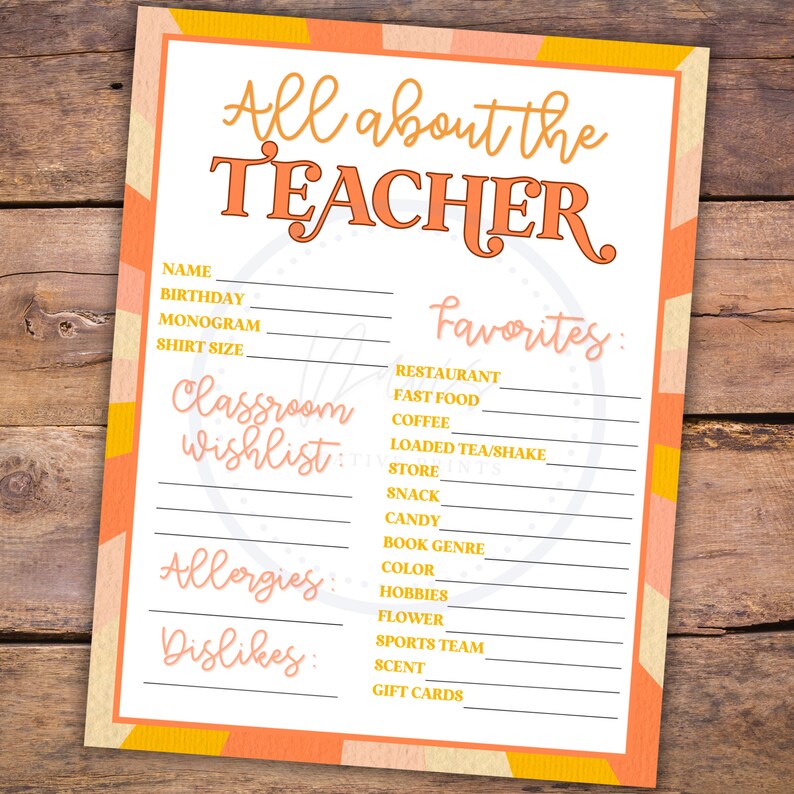 All about the
TEACHER
NAME
BIRTHDAY
MONOGRAM
SHIRT SIZE
Classroom
wishlist
Allergies:
Dislikes:
Favorites:
RESTAURANT
FAST FOOD
COFFEE
LOADED TEA/SHAKE
STORE
SNACK
CANDY
BOOK GENRE
COLOR
HOBBIES
FLOWER
SPORTS TEAM
SCENT
GIFT CARDS
PRINTS